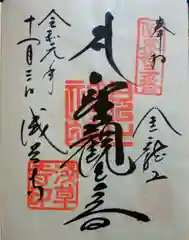 奉拝
金龍山
聖觀世音
令和元年
十一月三日
浅草寺